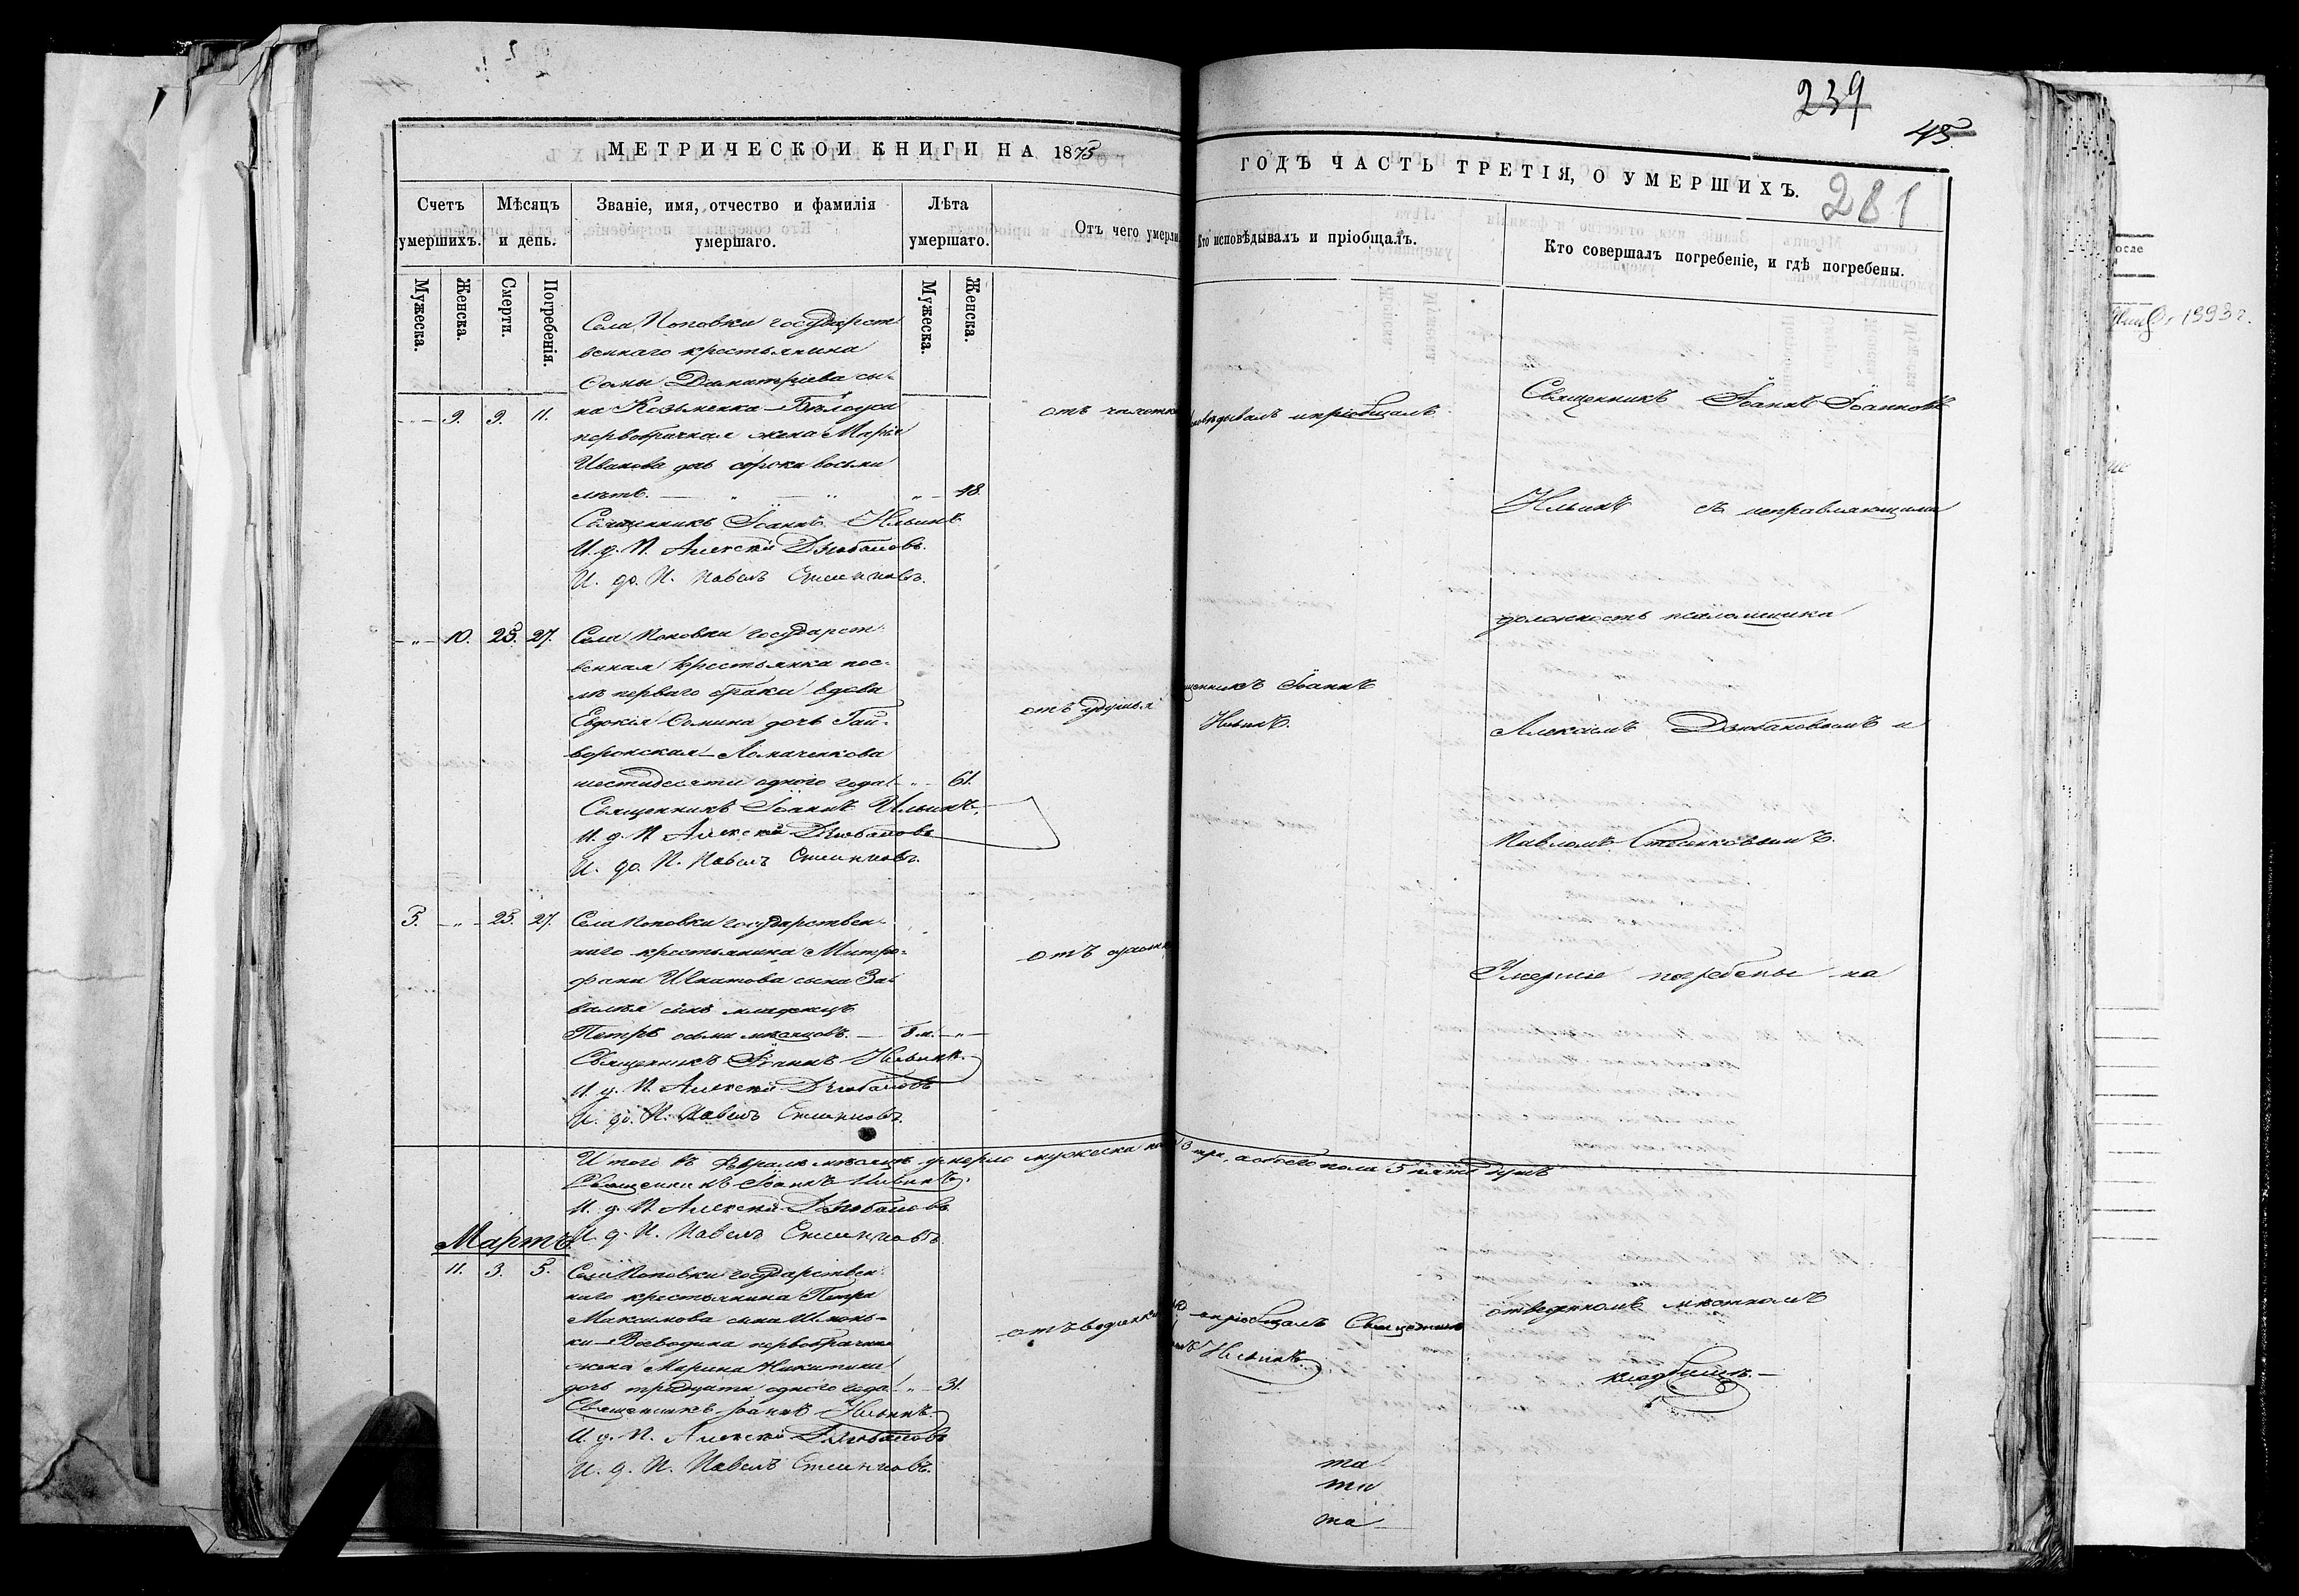 МЕТРИЧЕСКОЙ КНИГИ НА 1875
Счетъ умершихъ.
Мѣсяцъ и день.
Званіе, имя, отчество и фамилія умершаго.
Лѣта умершаго.
Отъ чего умерли
Мужеска.
Женска.
Смерти.
Погребенія.
Мужеска.
Женска.
Села Поповки государст
веннаго крестьянина
Ѳомы Димитріева сы-
9. 9. 11. на Козьменка-Бѣлоуса
первобрачная жена Марія
Иванова дочь сорока восьми
лѣтъ. 48.
отъ чахотки
Священникъ Іоаннъ Ильинъ
И. д. П. Алексѣй Дзюбановъ.
И. до. П. Павелъ
10. 25. 27. Села Поповки государст-
венная крестьянка пос-
лѣ перваго брака вдова
Евдокія Ѳомина дочь Гай-
воронская-Ломаченкова
шестидесяти одного года 61.
отъ удушья
Священникъ Іоаннъ Ильинъ.
И. д. П. Алексѣй Дзюбановъ
И. до. П. Павелъ
5. 25. 27. Села Поповки государствен-
наго крестьянина Митро-
фана Игнатова сына За-
сынъ младенецъ
Петръ осьми мѣсяцовъ. 8 м.
отъ
Священникъ Іоаннъ Ильинъ.
И. д. П. Алексѣй Дзюбановъ
И. до. П. Павелъ
Итого въ Февралѣ мѣсяцѣ умерло мужеска 3 три, а обоего пола 5 пять душъ
Священникъ Іоаннъ Ильинъ.
И. д. П. Алексѣй Дзюбановъ
И. д. П. Павелъ
Мартъ
11. 3. 5. Села Поповки государствен-
наго крестьянина Петра
Максимова сына Шконь-
ки-Воеводина первобрачная
жена Марина Никитина
дочь тридцати одного года 31.
отъ водянки
Священникъ Іоаннъ Ильинъ.
И. д. П. Алексѣй Дзюбановъ
И. д. П. Павелъ
239
45
281
ГОДЪ ЧАСТЬ ТРЕТІЯ, О УМЕРШИХЪ.
Кто исповѣдывалъ и пріобщалъ.
Кто совершалъ погребеніе, и гдѣ погребены.
исповѣдывалъ и пріобщалъ
щенникъ Іоаннъ
Ильинъ.
и пріобщалъ Священникъ
Ильинъ
та
ти
та
Священникъ Іоаннъ Іоанновъ
Ильинъ съ исправляющими
должность псаломщика
Алексѣемъ Дзюбановымъ и
Павломъ
Умершіе погребены на
отведенномъ мѣстномъ
кладбищѣ.
1993 г.